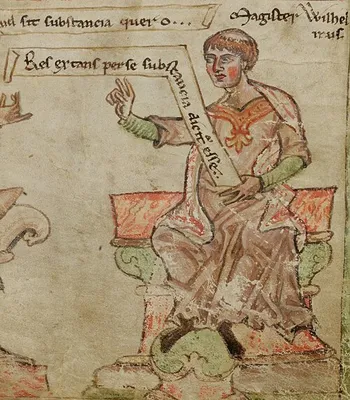 uid sit substancia quero...
Magister Wilhel
mus.
Res extans per se substancia dicit esse..